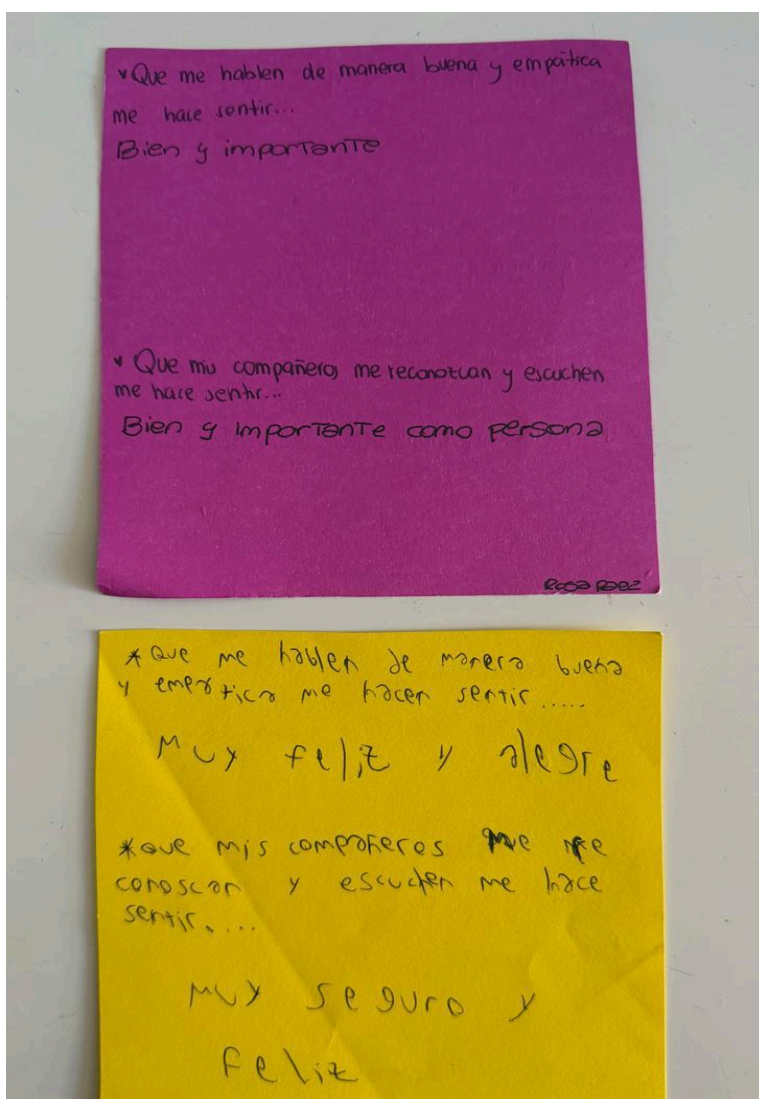 * Que me hablen de manera buena y empática
me hace sentir...
Bien y importante
* Que mis compañeros me reconozcan y escuchen
me hace sentir...
Bien y importante como persona
Rosa Paez
* Que me hablen de manera buena
y empatica me hacen sentir.....
Muy feliz y alegre
* que mis compañeros me
conoscan y escuchen me hace
sentir.....
muy seguro y
feliz